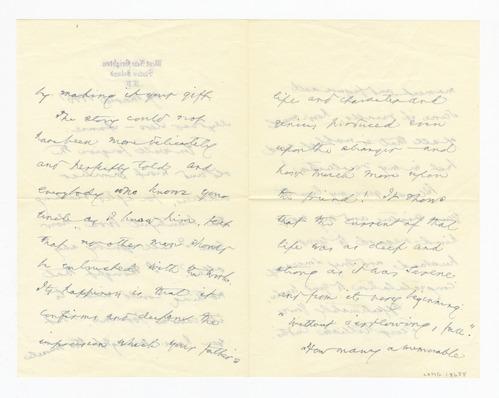 by making it your gift.
The story could not
have been more delicately
and perfectly told, and
everybody who knows your
uncle as I know him, felt
that no other man should
be entrusted with the work.
Its happiness is that it
confirms and deepens the
impression which your father's
life and character and
genius produced even
upon the stranger — and
how much more upon
the friend! It shows
that the current of that
life was as deep and
strong as it was serene
and from its very beginning
"Without o'erflowing, full."
How many a memorable